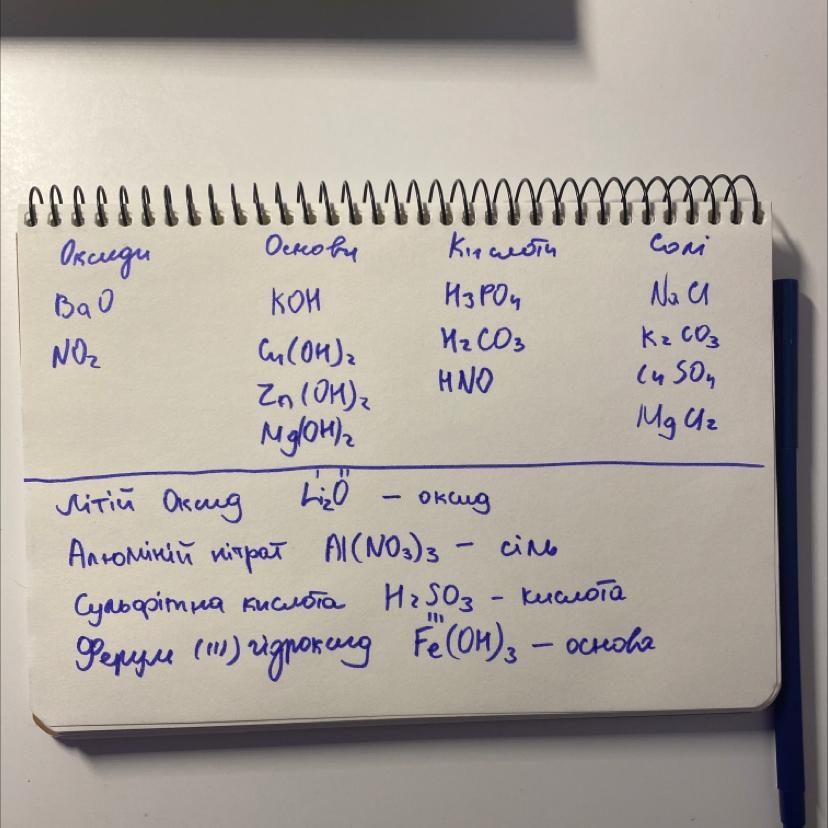 Оксиди Основи Кислоти Солі
BaO KOH H3PO4 NaCl
NO2 Cu(OH)2 H2CO3 K2CO3
Zn(OH)2 HNO CuSO4
Mg(OH)2 MgCl2
Літій Оксид Li₂O – оксид
Алюміній нітрат Al(NO3)3 – сіль
Сульфітна кислота H2SO3 – кислота
Ферум (III) гідроксид Fe(OH)3 – основа